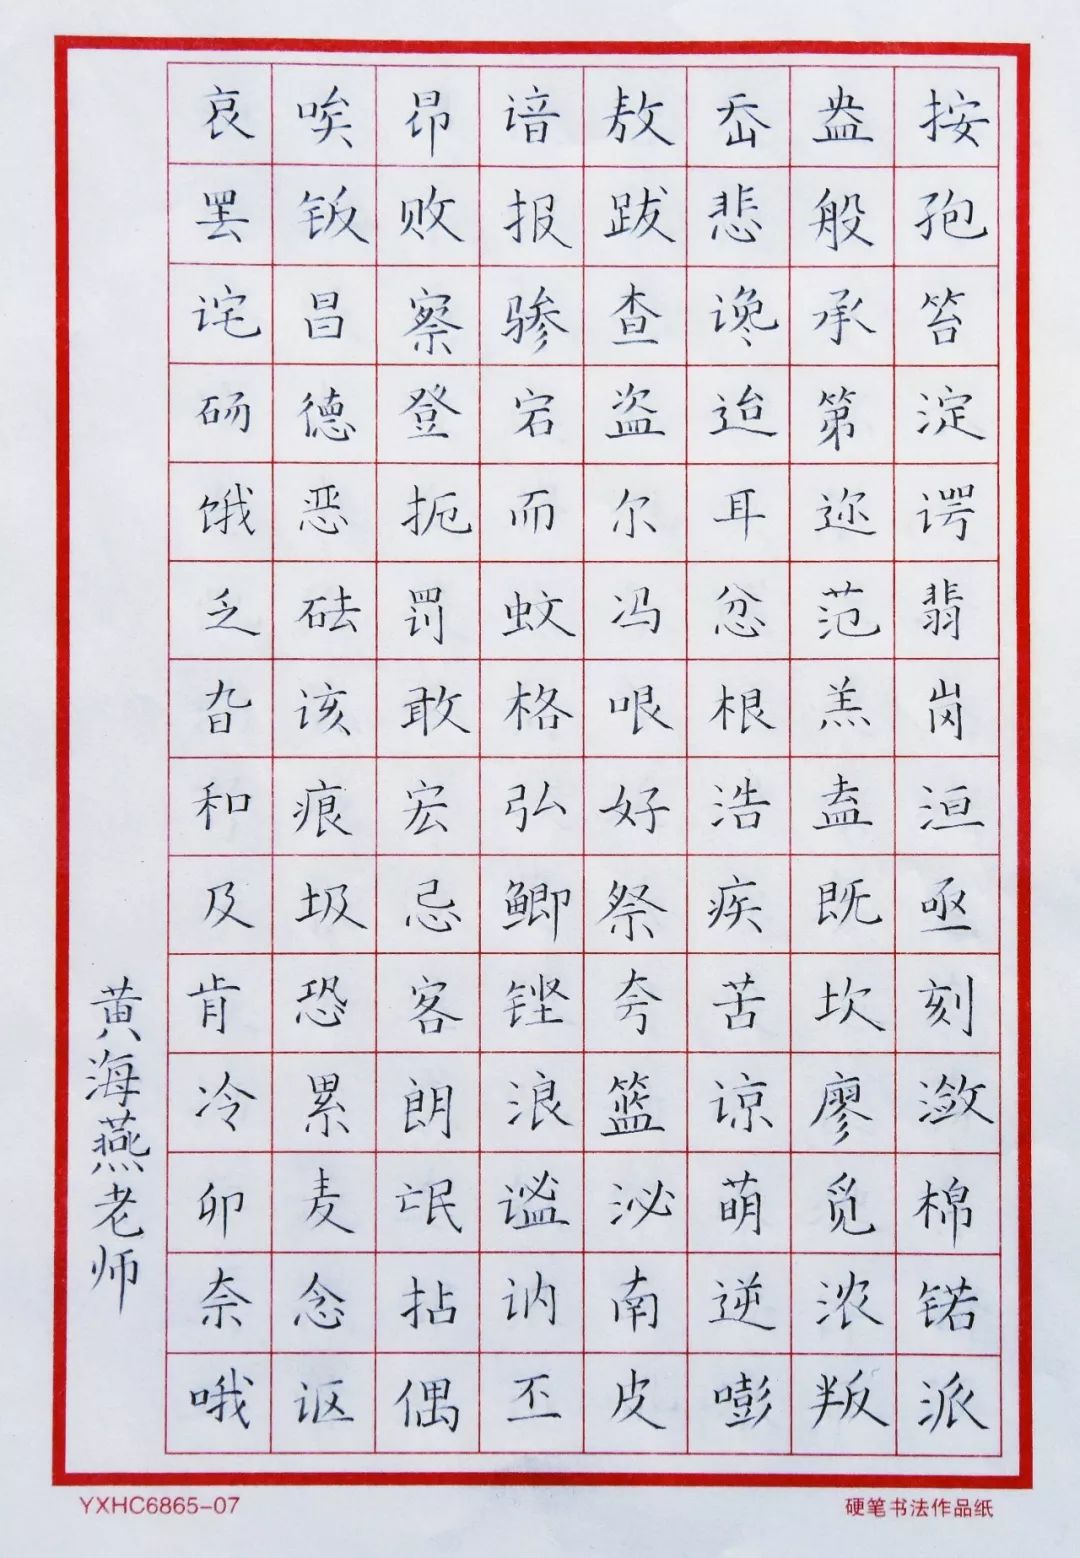 哀唉昂谙敖岙盎按
罢钣败报跋悲般孢
诧昌察骖查谗承答
砀德登宕盗迨第淀
饿恶扼而尔耳迩谔
乏砝罚蚊冯忿范翡
旮该敢格哏根羔岗
和痕宏弘好浩盍洹
及圾忌鲫祭疾既亟
肯恐客铿夸苦坎刻
冷累朗浪篮谅廖潋
卯麦氓谧泌萌觅棉
奈念拈讷南逆浓锘
哦讴偶丕皮嘭叛派
黄海燕老师
YXHC6865-07
硬笔书法作品纸